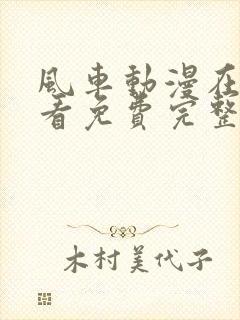 風車動漫在
看免費完整
木村美代子